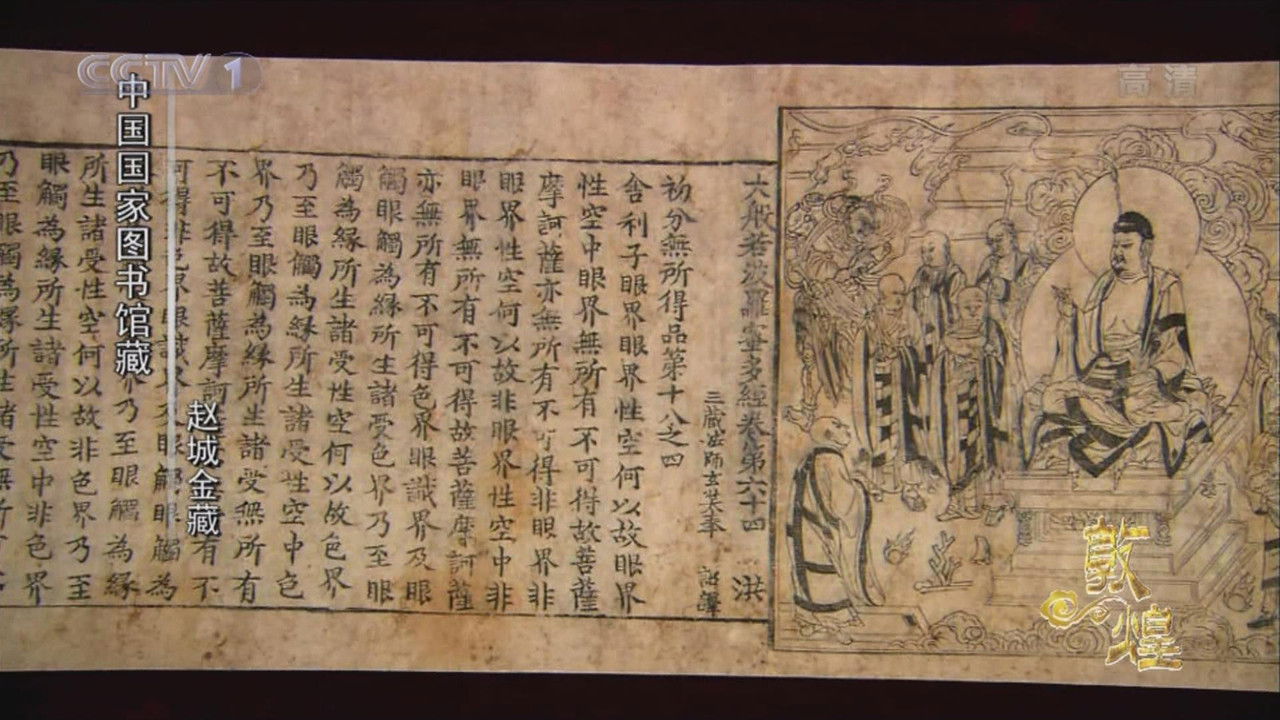 CCTV 1
高清
中国国家图书馆藏
赵城金藏
大般若波羅蜜多經卷第六十四 洪
三藏法師玄奘奉 詔譯
初分無所得品第十八之四
舍利子眼界眼界性空何以故眼界
性空中眼界無所有不可得故菩薩
摩訶薩亦無所有不可得非眼界非
眼界性空何以故非眼界性空中非
眼界無所有不可得故菩薩摩訶薩
亦無所有不可得色界眼識界及眼
觸眼觸為緣所生諸受色界乃至眼
觸為緣所生諸受性空何以故色界
乃至眼觸為緣所生諸受性空中色
界乃至眼觸為緣所生諸受無所有
不可得故菩薩摩訶 有不
可得 眼識 眼觸眼觸為
界乃至眼觸為緣
所生諸受性空何以故非色界乃至
眼觸為緣所生諸受性空中非色界
乃至眼觸為緣所生諸受無所
敦煌